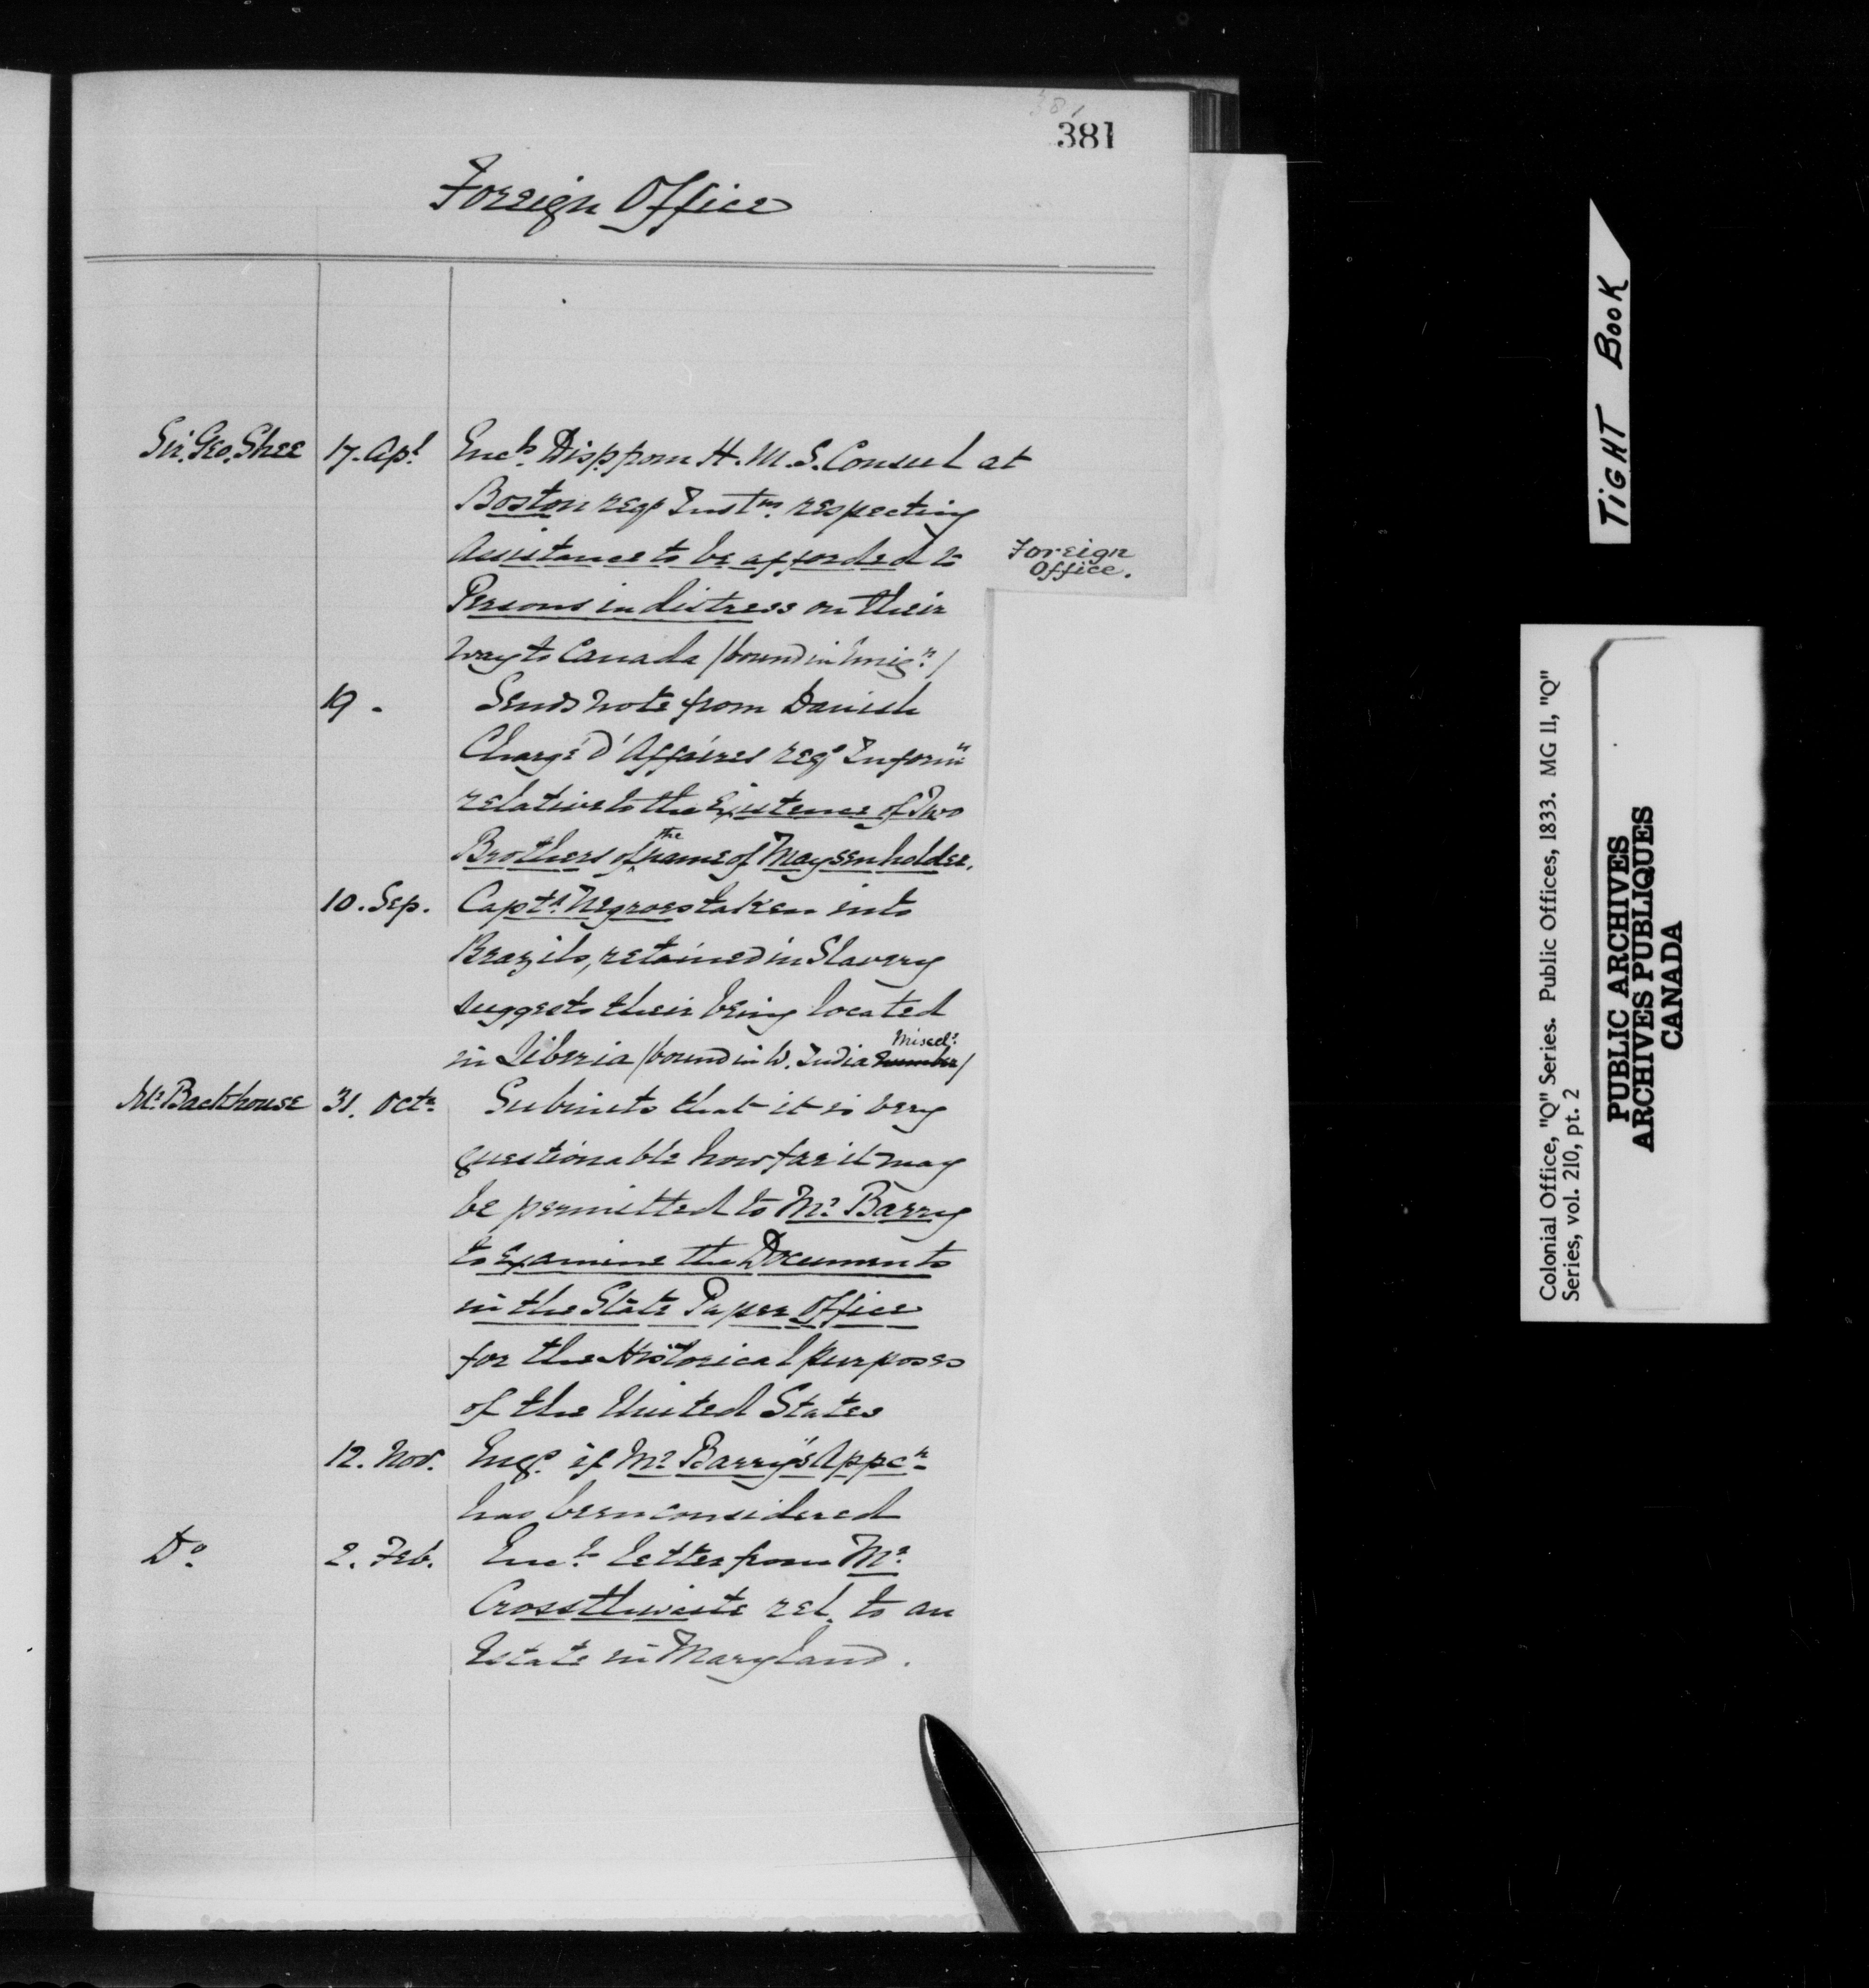 381
381
Foreign Office
Sir. Geo. Shee 17. Apl. Encls. Disp. from H. M. S. Consul at
Boston reqs Instns. respecting
Assistance to be afforded to
Persons in distress on their
way to Canada /bound in Emign./
19 - Sends note from Danish
Chargé D'Affaires reqs Informn
relative to the Existence of Two
Brothers of the name of Maysenholder.
10. Sep. Captd. Negroes taken into
Brazils, retained in Slavery
suggests their being located
in Liberia /bound in W. India Miscels. number/
Mr. Backhouse 31. Octr. Submits that it is very
questionable how far it may
be permitted to Mr. Barry
to Examine the Documents
in the State Paper Office
for the Historical purposes
of the United States
12. Nov. Enqs. if Mr. Barry's Appcn.
has been considered
Do. 2. Feb. Encls. letter from Mr.
Crossthwaite rel. to an
Estate in Maryland.
Foreign
Office.
TIGHT BOOK
Colonial Office, "Q" Series. Public Offices, 1833. MG 11, "Q"
Series, vol. 210, pt. 2
PUBLIC ARCHIVES
ARCHIVES PUBLIQUES
CANADA